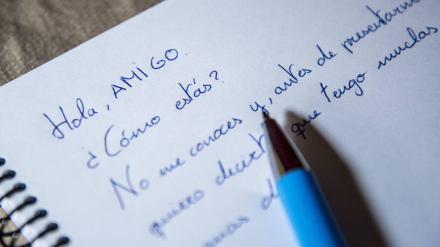 Hola, AMIGO.
¿Cómo estás?
No me conoces y, antes de presentarme
quiero decirte que tengo muchas
de